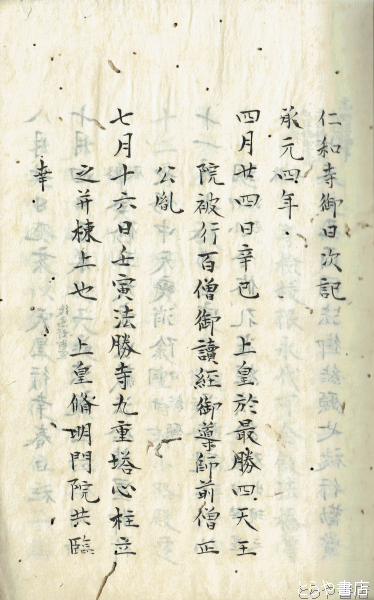 仁和寺御日次記
承元四年
四月廿四日辛巳 上皇於最勝四天王
院被行百僧御讀經御導師前僧正
公胤
七月十六日壬寅法勝寺九重塔心柱立
之幷棟上也 上皇脩明門院共臨
幸
とらや書店